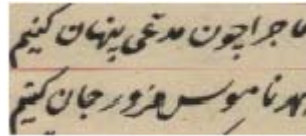 ماجرا چون مدعی پنهان کنیم
بهر ناموس مزور جان کنیم